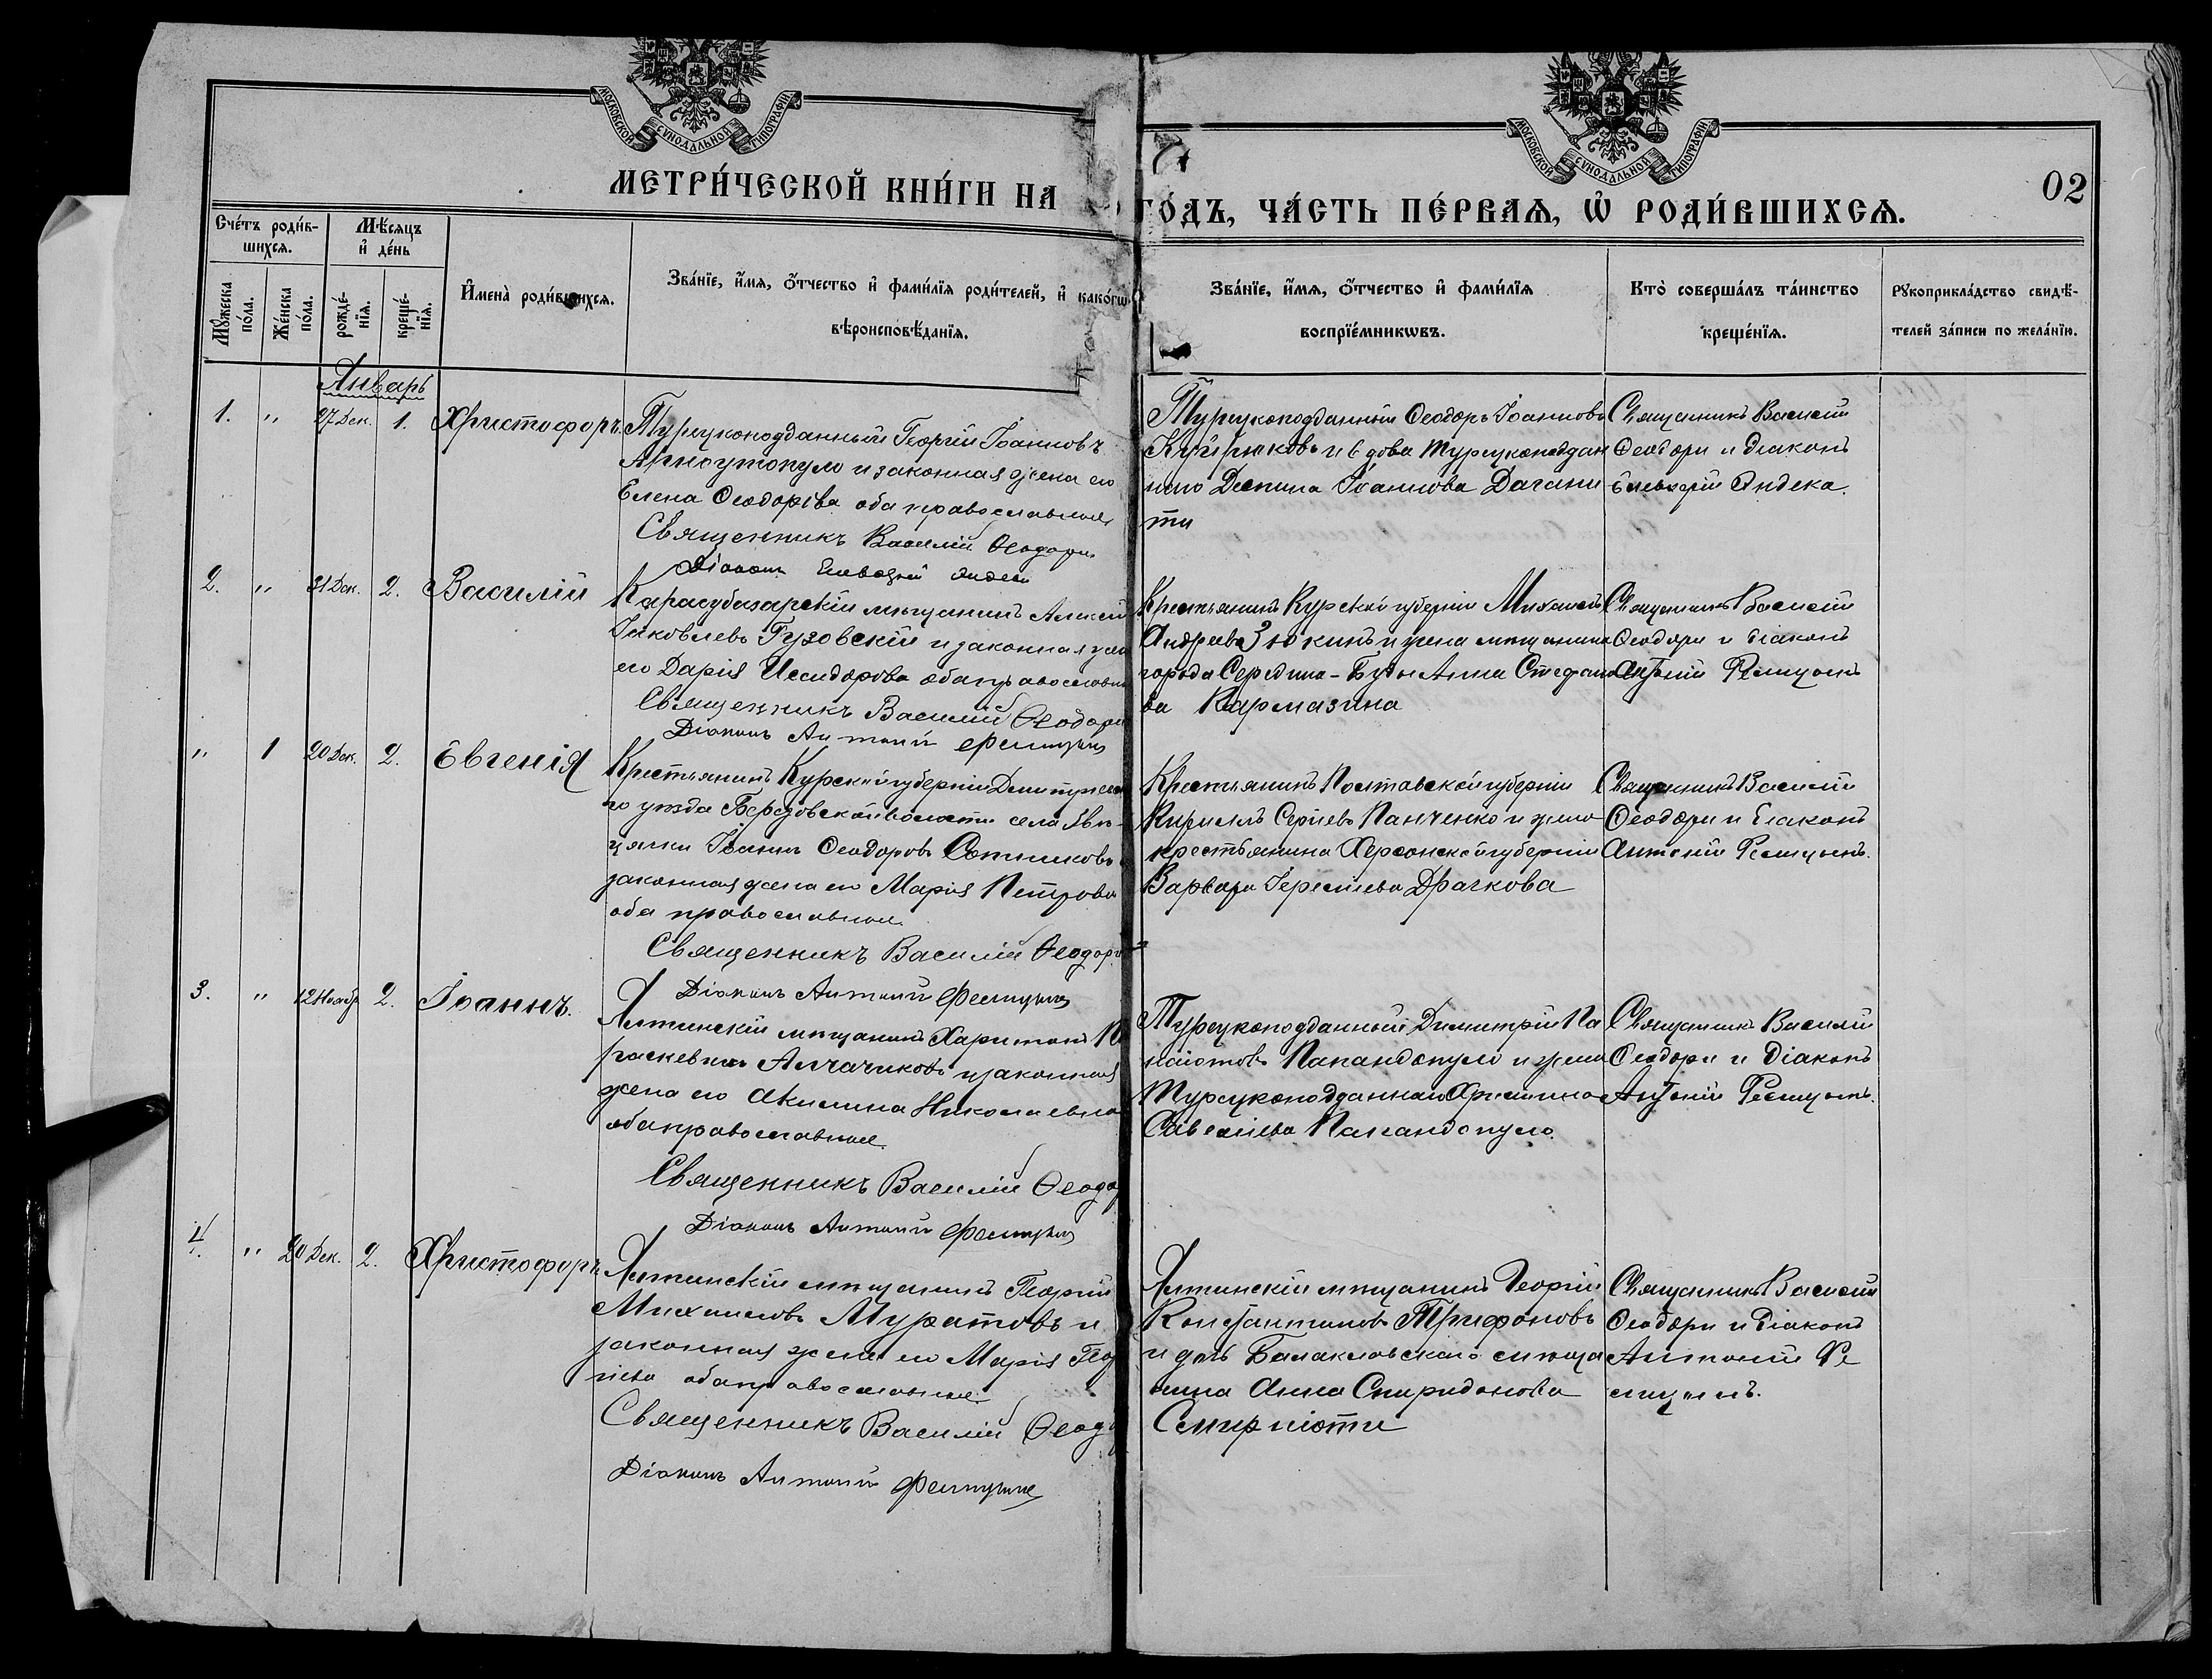 МОСКОВСКОЙ СУНОДАЛЬНОЙ ТИПОГРАФІИ
МОСКОВСКОЙ СУНОДАЛЬНОЙ ТИПОГРАФІИ
02
МЕТРИ́ЧЕСКОЙ КНИ́ГИ НА
ГО́ДЪ, ЧА́СТЬ ПЕ́РВАЯ, Ѡ РОДИ́ВШИХСЯ.
Сче́тъ роди́в-
шихся.
Мѣ́сяцъ
и҆ де́нь
Му́жеска
по́ла.
Же́нска
по́ла.
рожде́-
нїя.
креще́-
нїя.
И҆мена̀ роди́вшихся.
Зва́нїе, и҆́мя, ѻ҆́тчество и҆ фами́лїя роди́телей, и҆ како́гѡ
вѣроисповѣ́данїя.
Зва́нїе, и҆́мя, ѻ҆́тчество и҆ фами́лїя
воспрїе́мникѡвъ.
Кто̀ соверша́лъ та́инство
креще́нїя.
Рукоприкла́дство свидѣ́-
телей за́писи по жела́нїю.
Январь
1. " 27 Дек. 1. Христофоръ.
Турецкоподданный Георгій Іоанновъ
Арноутопуло и законная жена его
Елена Ѳеодорова оба православные
Священникъ Василій Ѳеодори
Діаконъ
Турецкоподданный Ѳеодоръ Іоанновъ
и вдова Турецкоподдан
наго Деспина Іоаннова Дагани
ти
Священникъ Василій
Ѳеодори и діаконъ
Елевѳерій Андека.
2. " 31 Дек. 2. Василій
Карасубазарскій мѣщанинъ Алексій
Іаковлевъ Гузовскій и законная жена
его Дарія Исидорова оба православные
Священникъ Василій Ѳеодори
Діаконъ Антоній
Крестьянинъ Курской губерніи Михаилъ
Андреевъ Зюкинъ и жена мѣщанина
города Середина-Буды Анна Стефано
ва Кармазина
Священникъ Василій
Ѳеодори и діаконъ
Антоній
" 1 20 Дек. 2. Евгенія
Крестьянинъ Курской губерніи
го уѣзда волости села
Іоаннъ Ѳеодоровъ Сотниковъ
законная жена его Марія Петрова
оба православные.
Священникъ Василій Ѳеодори
Діаконъ Антоній
Крестьянинъ Полтавской губерніи
Кириллъ Сергіевъ Панченко и жена
крестьянина Херсонской губерніи
Варвара Драчкова
Священникъ Василій
Ѳеодори и діаконъ
Антоній
3. " 12 Ноябр. 2. Іоаннъ.
Ялтинскій мѣщанинъ Харитонъ Па
раскевинъ Алчачиковъ и законная
жена его Акилина Николаевна
оба православные.
Священникъ Василій Ѳеодори
Діаконъ Антоній
Турецкоподданный Димитрій Па
наіотовъ Папандопуло и жена
Турецкоподданнаго Христина
Савеліева Папандопуло.
Священникъ Василій
Ѳеодори и Діаконъ
Антоній
4. " 20 Дек. 2. Христофоръ
Ялтинскій мѣщанинъ Георгій
Михаиловъ Муратовъ и
законная жена его Марія Геор
гіева оба православные.
Священникъ Василій Ѳеодори
Діаконъ Антоній
Ялтинскій мѣщанинъ Георгій
Константиновъ Трифоновъ
и дочь Балаклавскаго мѣща
нина Анна Спиридонова
Смирніоти
Священникъ Василій
Ѳеодори и діаконъ
Антоній